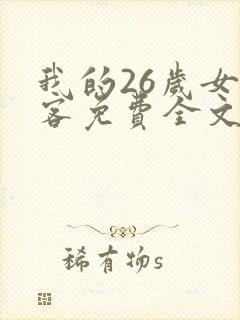 我的26岁女
客免费全文
稀有物s